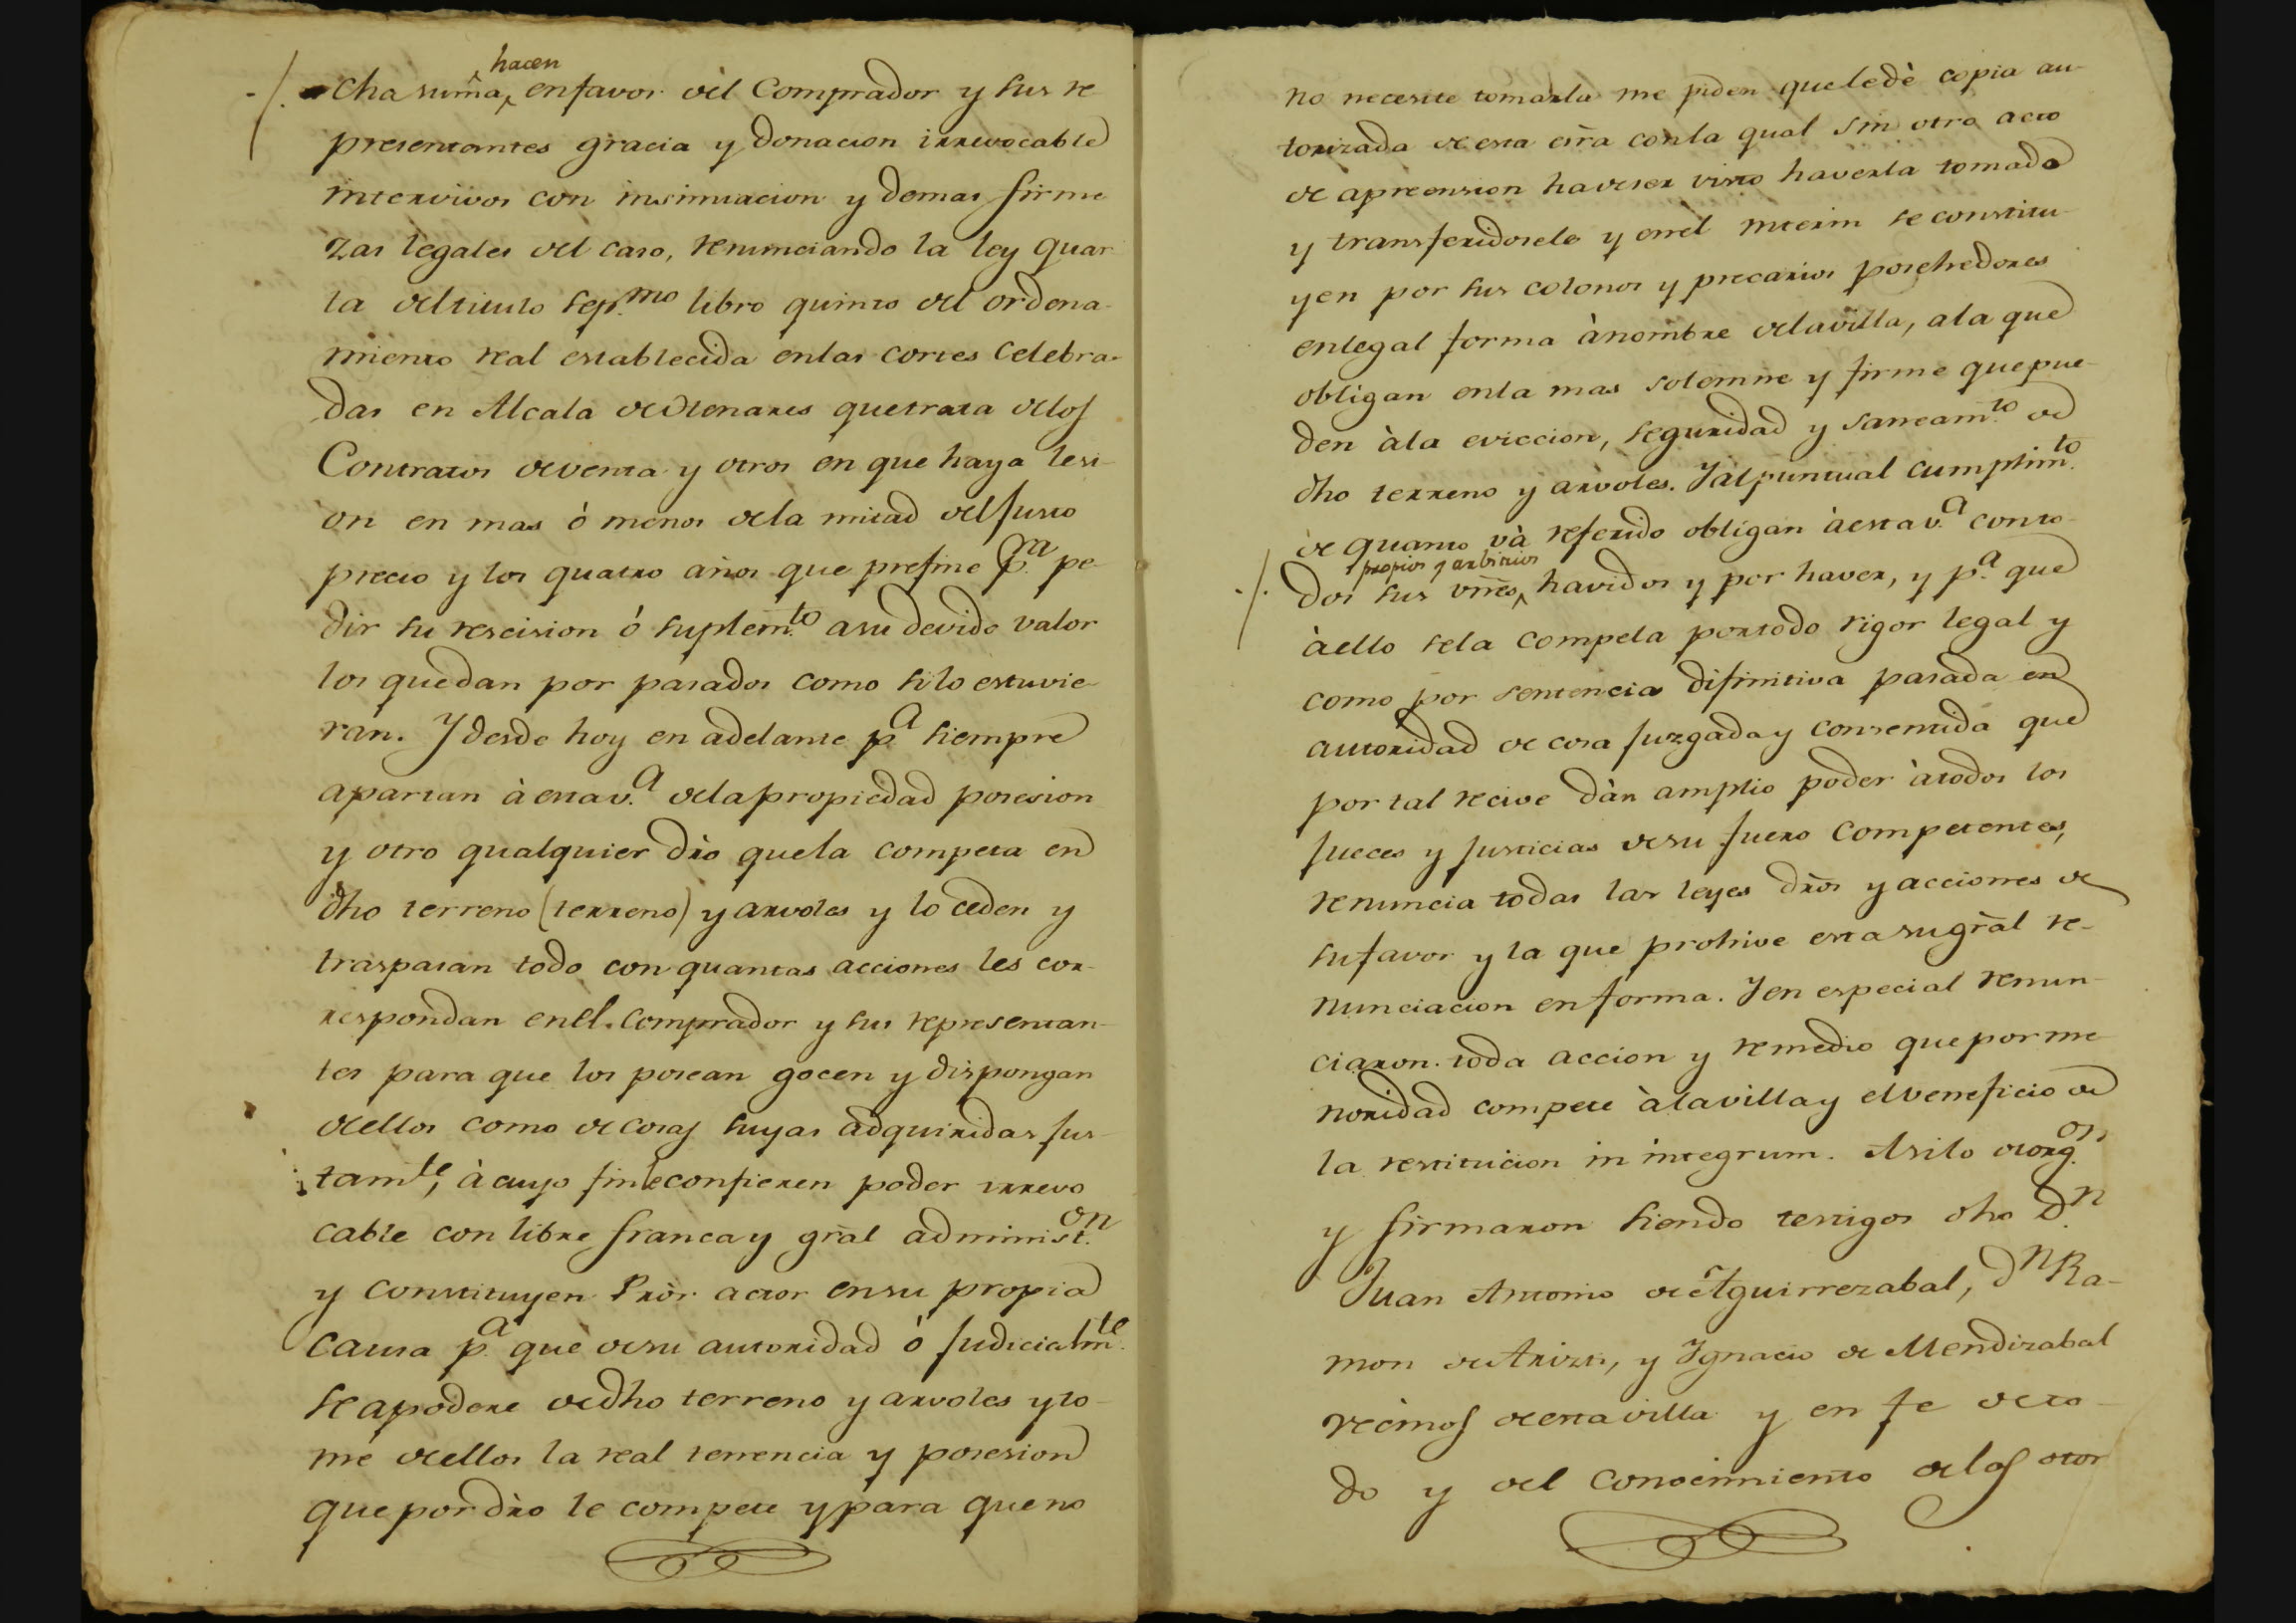 hacen
cha suma, en favor del Comprador y sus re
presentantes gracia y donacion irrevocable
intervivos con insinuacion y demas firme
zas legales del caso, renunciando la ley quar
ta del titulo sep.mo libro quinto del ordena
miento real establecida en las cortes celebra-
das en Alcala de Henares que trata de los
Contratos de venta y otros en que haya lesi-
on en mas ò menos de la mitad del justo
precio y los quatro años que prefine p.ra pe-
dir su rescision ó suplem.to a su devido valor
los quedan por pasados como si lo estuvie-
ran. Y desde hoy en adelante p.a siempre
apartan à esta v.a de la propiedad posesion
y otro qualquier dro que la competa en
dho terreno (terreno) y arvoles y lo ceden y
traspasan todo con quantas acciones les cor-
respondan en el Comprador y sus representan-
tes para que los posean gocen y dispongan
de ellos como de cosas suyas adquiridas jus-
tam.te, à cuyo fin le confieren poder irrevo
cable con libre franca y gral administ.on
y constituyen Pròr actor en su propia
causa p.a que de su autoridad ò judicialm.te
se apodere de dho terreno y arvoles y to-
me de ellos la real tenencia y posesion
que por dro le compete y para que no
no necesite tomarla me piden que le dè copia au-
torizada de esta esra con la qual sin otro acto
de apreension ha de ser visto haverla tomado
y transferidosele y en el interin se constitu-
yen por sus colonos y precarios posehedores
en legal forma à nombre de la villa, a la que
obligan en la mas solemne y firme que pue-
den à la eviccion, seguridad y saneam.to de
dho terreno y arvoles. Y al puntual cumplim.to
de quanto và referido obligan à esta v.a con to-
propios y arbitrios
dos sus vnes, havidos y por haver, y p.a que
à ello se la compela por todo rigor legal y
como por sentencia difinitiva pasada en
autoridad de cosa juzgada y consentida que
por tal recive dàn amplio poder à todos los
jueces y justicias de su fuero competentes,
renuncia todas las leyes dros y acciones de
su favor y la que prohive esta su gral re-
nunciacion en forma. Y en especial renun-
ciaron toda accion y remedio que por me
noridad compete à la villa y el veneficio de
la restitucion in integrum. Asi lo otorg.on
y firmaron siendo testigos dho D.n
Juan Antonio de Aguirrezabal, D.n Ra-
mon de Arizti, y Ignacio de Mendizabal
vecinos de esta villa y en fe de to-
do y del conocimiento de los otor